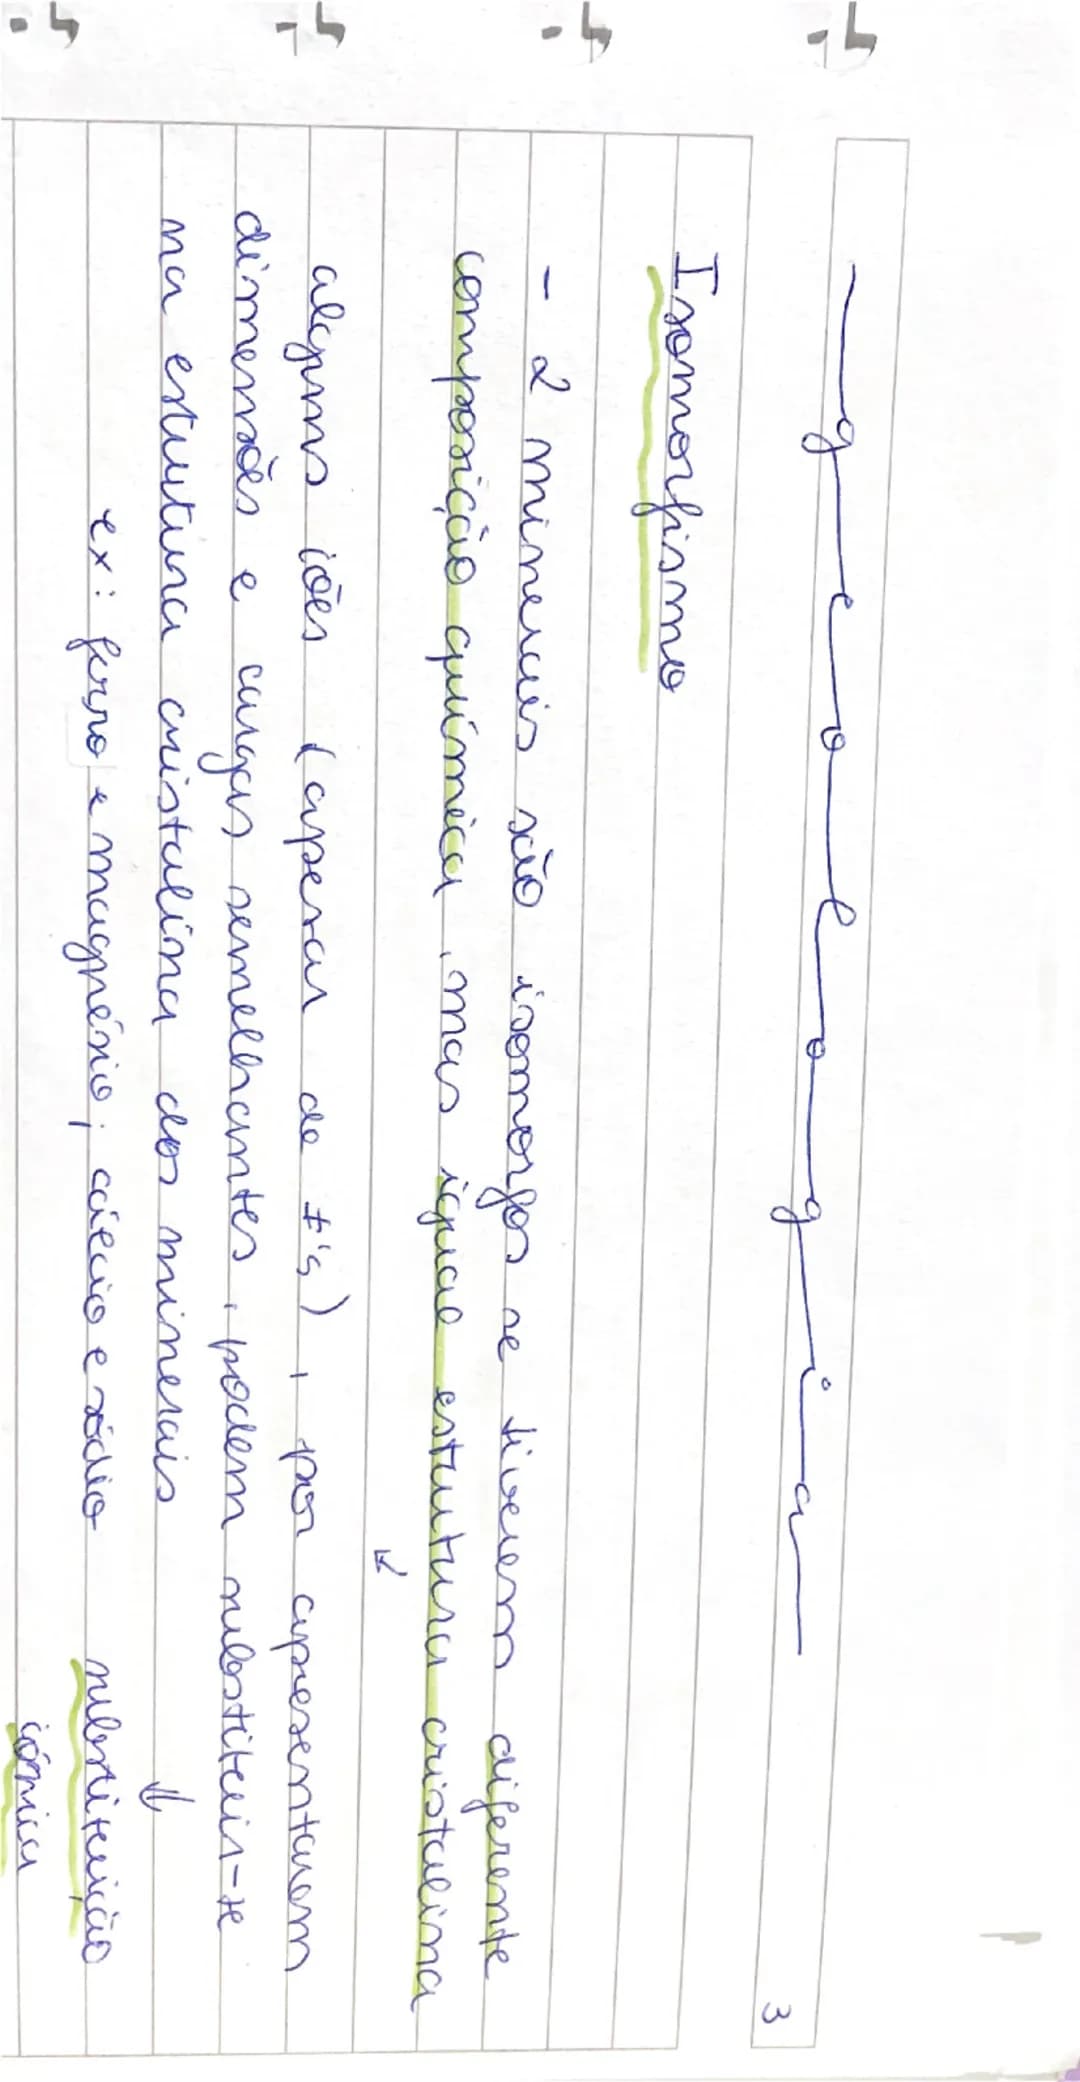 geologia
3
Isomorfismo
- 2 minerais são isomorfos se tiverem diferente
composição química, mas igual estrutura cristalina
alguns iões (apesar de ≠'s), por apresentarem
dimensões e cargas semelhantes, podem substituir-se
na estrutura cristalina dos minerais
ex: ferro e magnésio; cálcio e sódio substituição
iónica